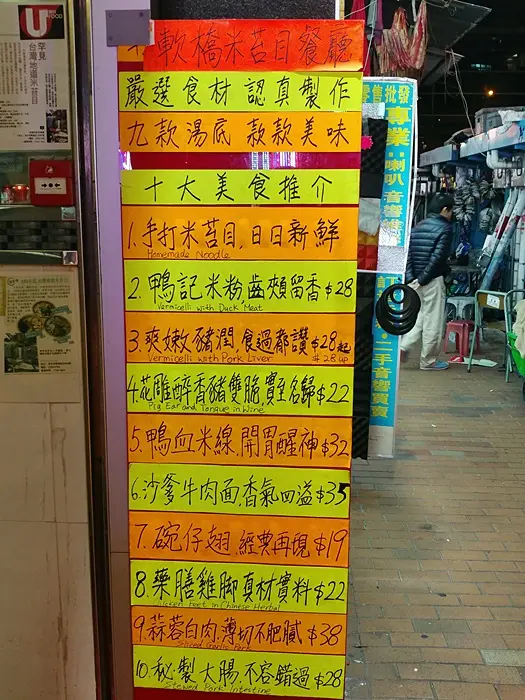 U
FOOD
罕見
台灣地道米苔目
軟橋米苔目餐廳
嚴選食材 認真製作
九款湯底 款款美味
十大美食推介
1.手打米苔目,日日新鮮
Homemade Noodle
2.鴨記米粉,齒頰留香$28
Vermicelli with Duck Meat
3.爽嫩豬潤,食過都讚$28起
Vermicelli with Pork Liver $28 up
4.花雕醉香豬雙脆,實至名歸$22
Pig Ear and Tongue in Wine
5.鴨血米線,開胃醒神$32
6.沙爹牛肉面,香氣四溢$35
7.碗仔翅,經典再現$19
8.藥膳雞脚真材實料$22
Chicken Feet in Chinese Herbal
9.蒜蓉白肉,薄切不肥膩$38
Sliced Garlic Pork
10.秘製大腸,不容錯過$28
Stewed Pork Intestine
零售批發
專業
喇叭
音響
二手音響買賣